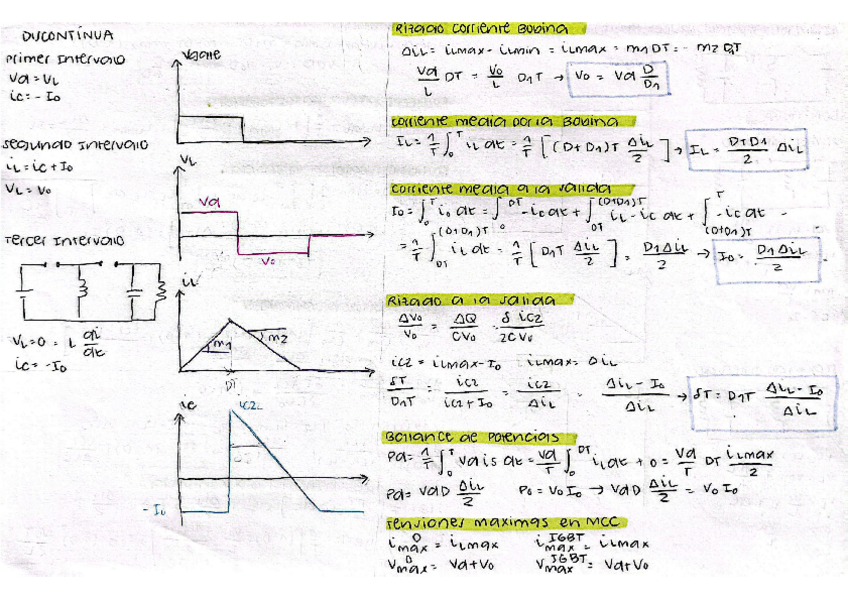 DISCONTÍNUA
Primer Intervalo
Vd = VL
ic = - Io
Segundo Intervalo
iL = ic + Io
VL = Vo
Tercer Intervalo
VL = 0 = L di/dt
ic = - Io
Vgate
VL
Vd
Vo
iL
m1
m2
DT
ic
ic2
- Io
Rizado corriente Bobina
ΔiL = iLmax - iLmin = iLmax = m1 DT = - m2 D1T
Vd/L DT = Vo/L D1T → Vo = Vd D/D1
Corriente media por la Bobina
IL = 1/T ∫₀ᵀ iL dt = 1/T [(D+D1)T ΔiL/2] → IL = D+D1/2 ΔiL
Corriente media a la salida
Io = ∫₀ᵀ io dt = ∫₀^DT -ic dt + ∫_DT^(D+D1)T iL - ic dt + ∫_(D+D1)T^T -ic dt =
= 1/T ∫_DT^(D+D1)T iL dt = 1/T [D1T ΔiL/2] = D1ΔiL/2 → Io = D1ΔiL/2
Rizado a la salida
ΔVo/Vo = ΔQ/CVo = δ ic2/2CVo
ic2 = iLmax - Io iLmax = ΔiL
δT/D1T = ic2/ic2+Io = ic2/ΔiL = ΔiL - Io/ΔiL → δT = D1T ΔiL - Io/ΔiL
Ballance de Potencias
Pd = 1/T ∫₀ᵀ Vd is dt = Vd/T ∫₀^DT iL dt + 0 = Vd/T DT iLmax/2
Pd = Vd D ΔiL/2 Po = Vo Io → Vd D ΔiL/2 = Vo Io
Tensiones maximas en MCC
i^D max = iLmax i^IGBT max = iLmax
V^D max = Vd+Vo V^IGBT max = Vd+Vo